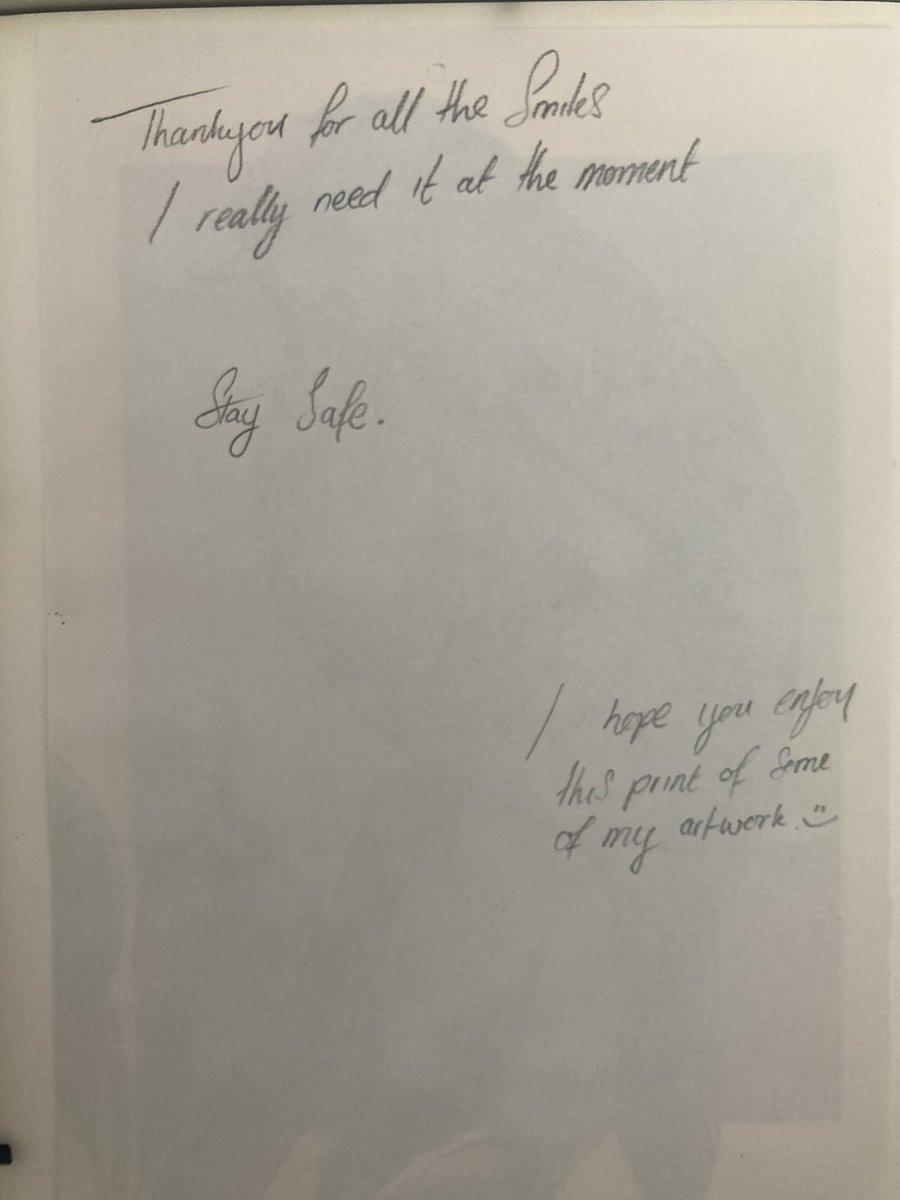 Thankyou for all the Smiles
I really need it at the moment
Stay Safe.
I hope you enjoy
this print of some
of my artwork. :)